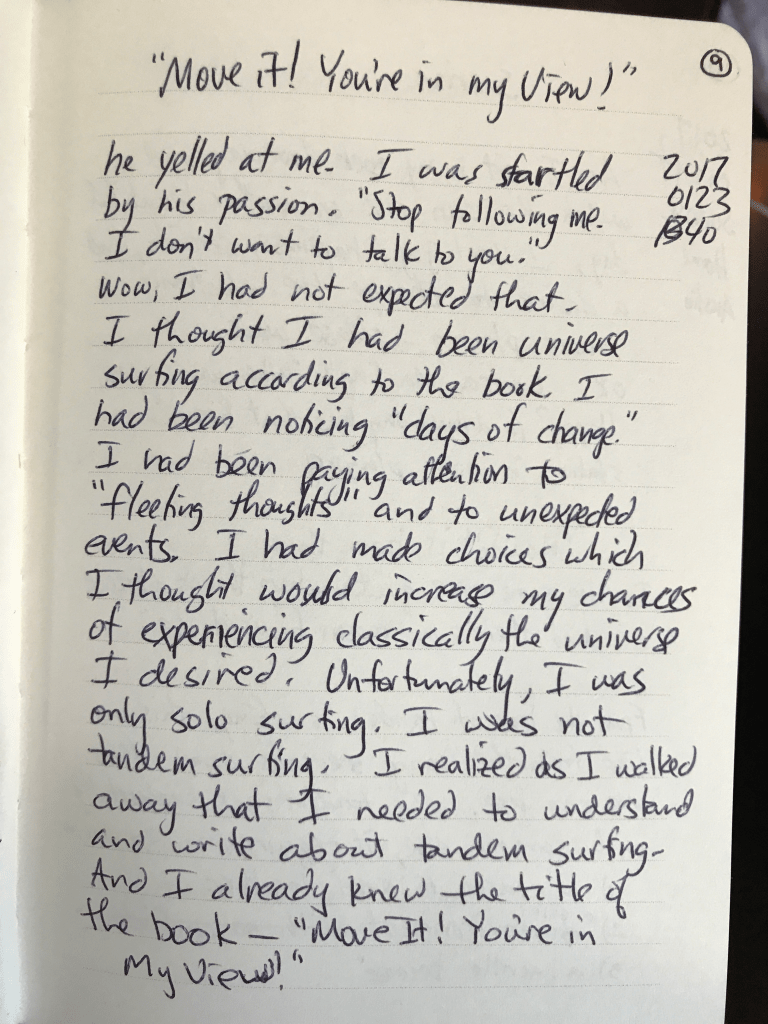 9
"Move it! You're in my View!"
he yelled at me. I was startled
2017
by his passion. "Stop following me.
0123
I don't want to talk to you."
1340
Wow, I had not expected that.
I thought I had been universe
surfing according to the book. I
had been noticing "days of change."
I had been paying attention to
"fleeting thoughts" and to unexpected
events. I had made choices which
I thought would increase my chances
of experiencing classically the universe
I desired. Unfortunately, I was
only solo surfing. I was not
tandem surfing. I realized as I walked
away that I needed to understand
and write about tandem surfing.
And I already knew the title of
the book – "Move It! You're in
My View!"